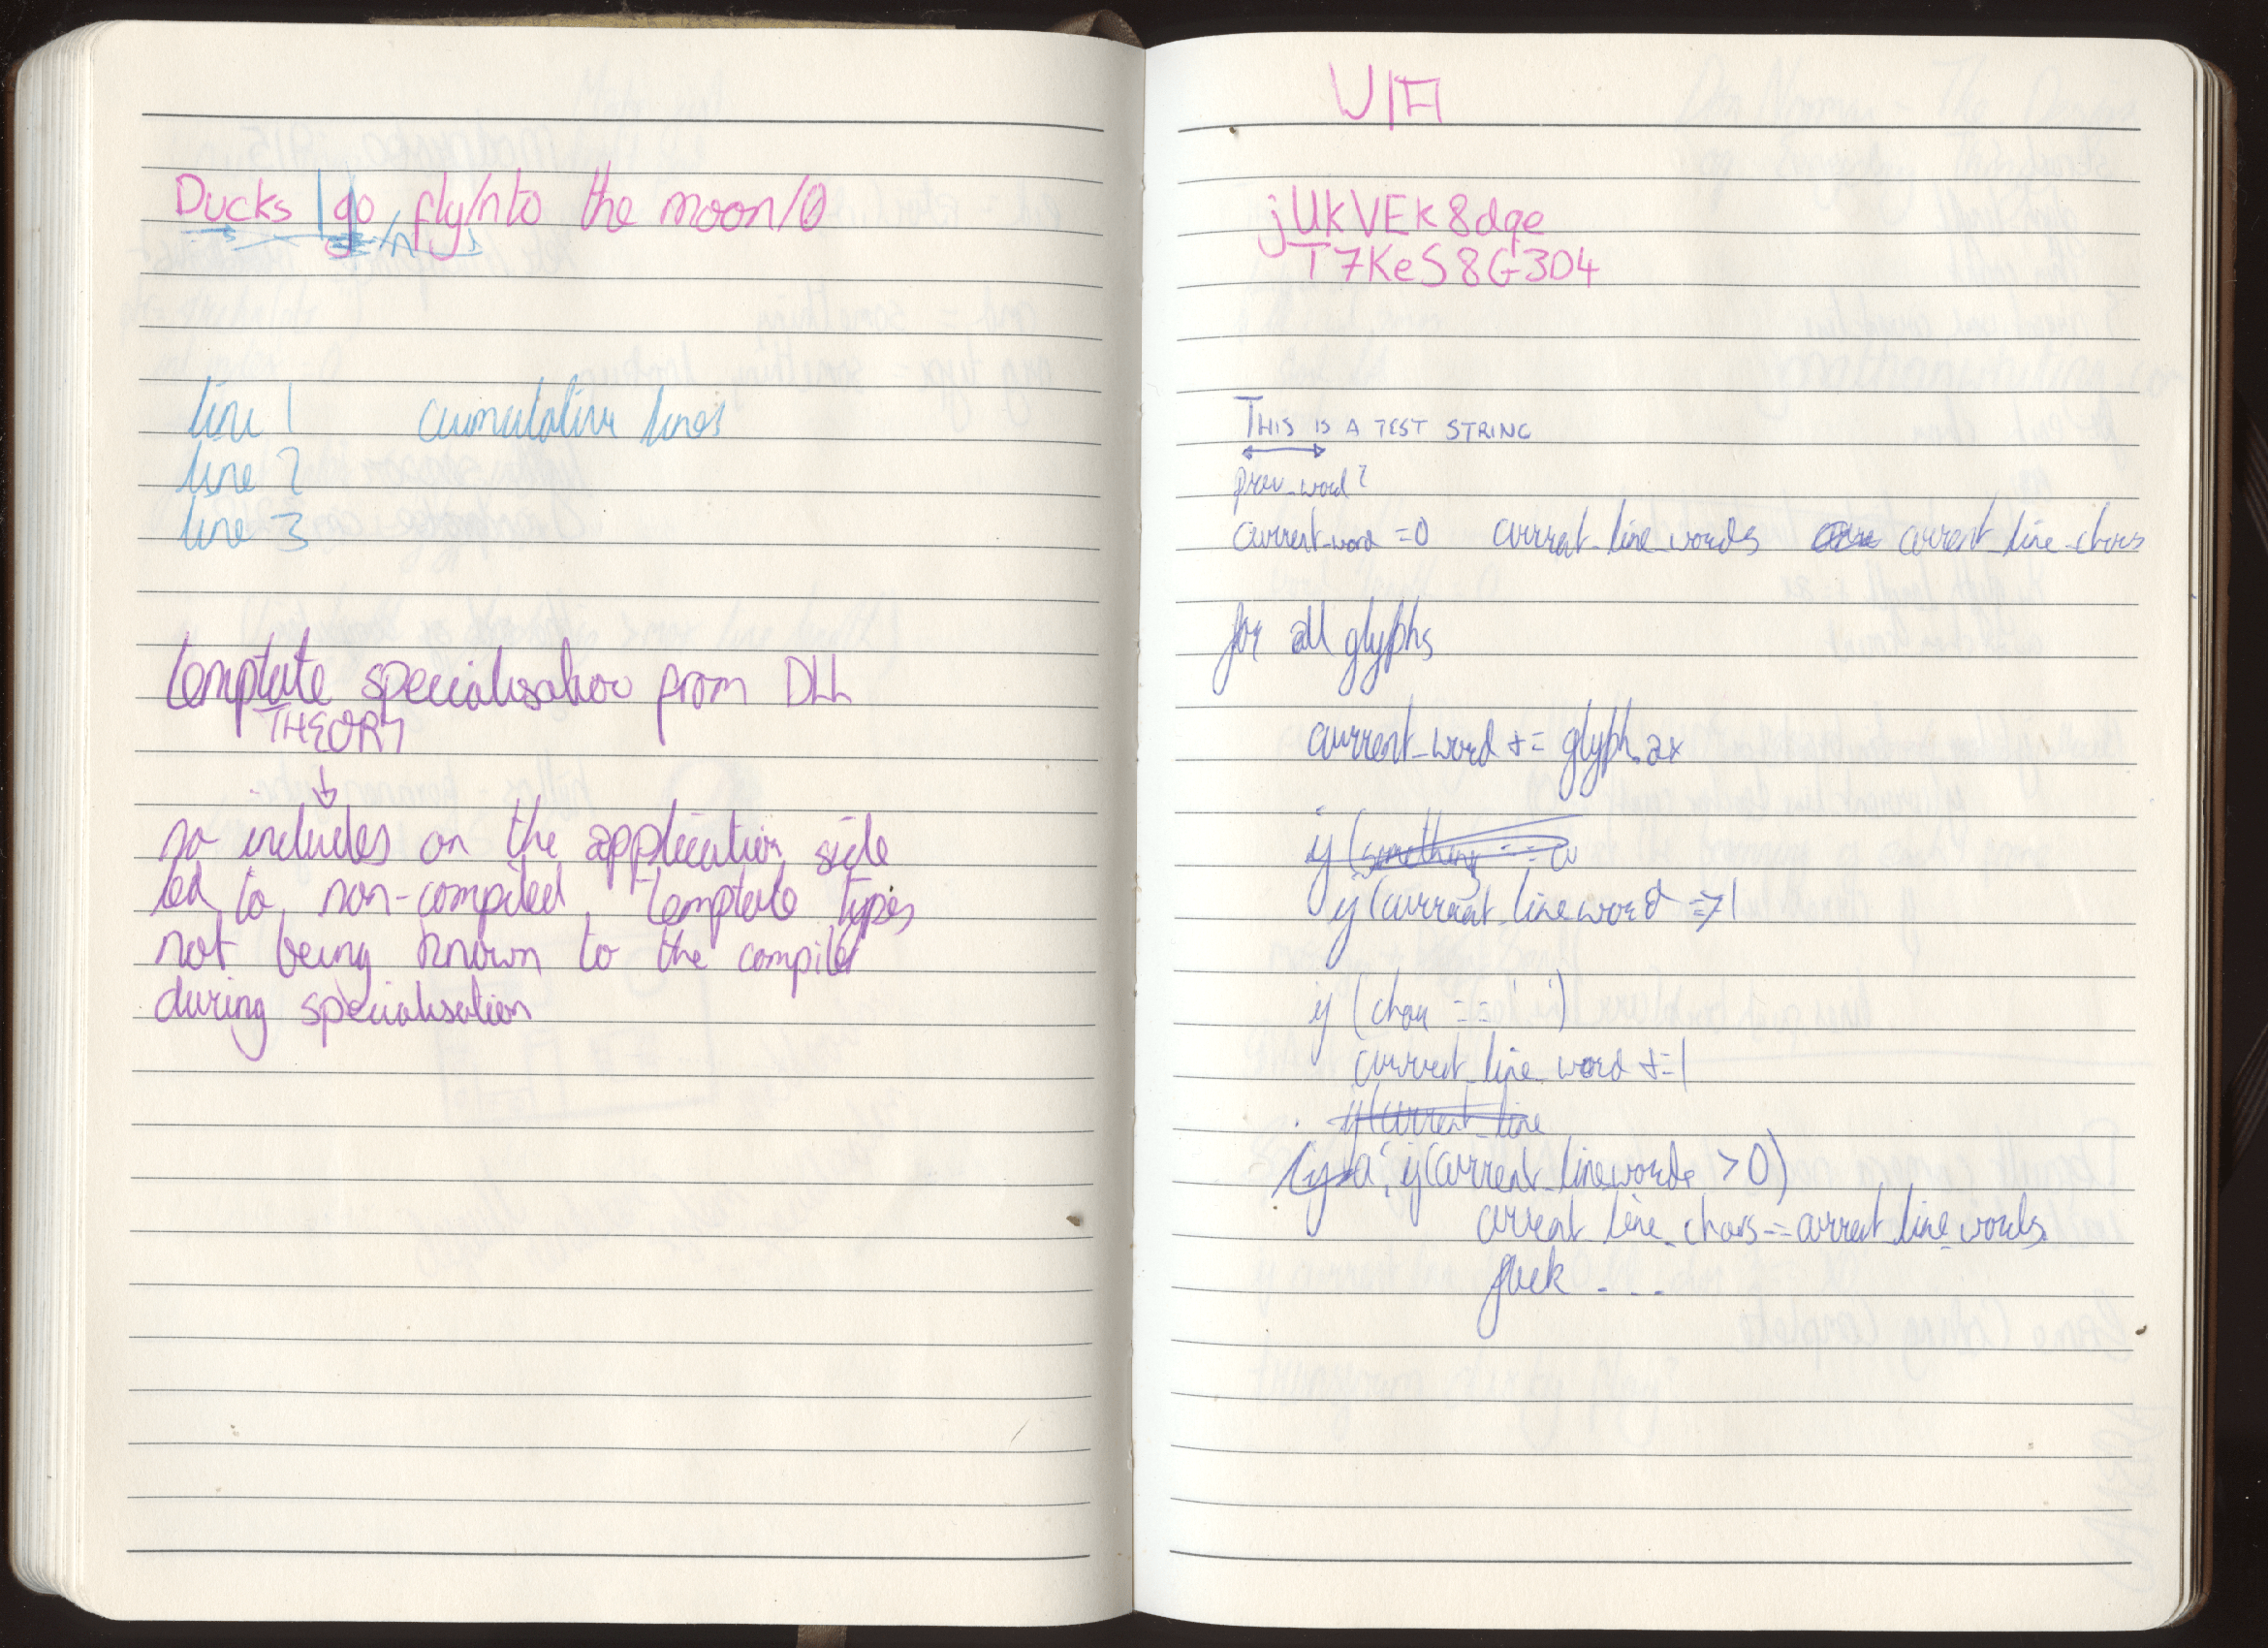 Ducks | go fly/nto the moon/0
/n
line 1 cumulative lines
line 2
line 3
template specialisation from DLL
THEORY
↓
no includes on the application side
led to non-compiled template types
not being known to the compiler
during specialisation
jUkVEk8dqe
T7KeS8G3D4
THIS IS A TEST STRING
prev_word?
current_word =0 current_line_words current_line_chars
for all glyphs
current_word += glyph.ax
if (something ==
if (current_line word => 1
if (char == ' ')
current_line_word +=1
if(current_line
if(current_linewords >0)
current line_chars -= current_line_words
fuck ...